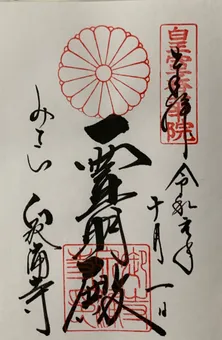 皇室香華院
奉拝
令和元年
十月一日
霊明殿
みてら
泉涌寺